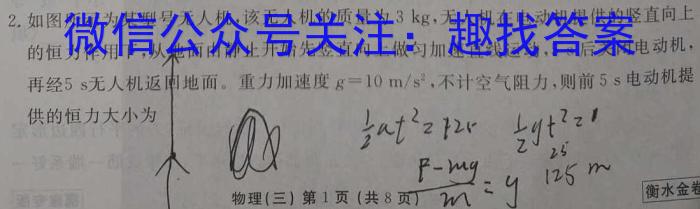 2. 如图 为某型号无人机,该无人机的质量为3 kg,无人机在电动机提供的竖直向上
微信公众号关注:趣找答案
的恒力作用下,从地面由静止开始先竖直向上做匀加速直线运动, 5 s后关闭电动机,
再经5 s无人机返回地面。重力加速度 g=10 m/s²,不计空气阻力,则前5 s电动机提
供的恒力大小为
½at²=125
½gt²=
25
125 m
F-mg
m
物理(三) 第1页(共8页)
衡水金卷